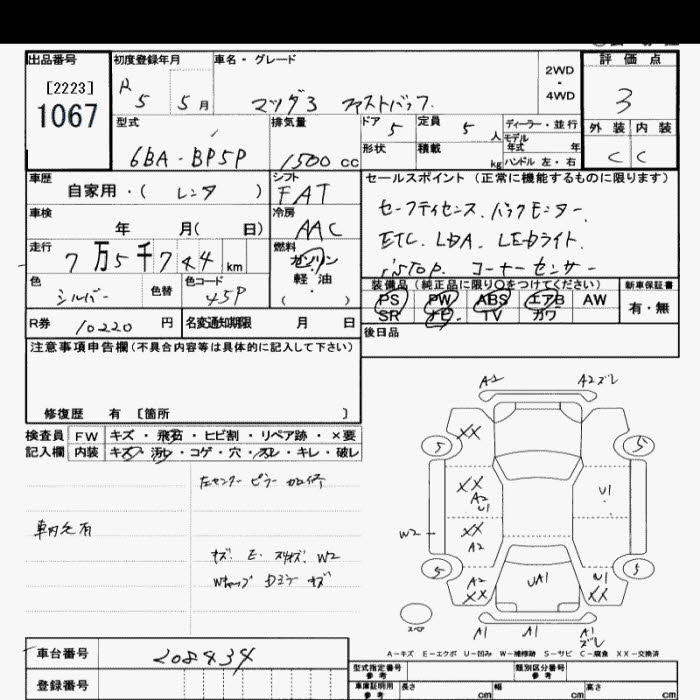 出品番号 初度登録年月 車名・グレード 評価点
[2223]
1067
R5 5月 マツダ3 ファストバック 2WD・4WD 3
型式 排気量 ドア 5 定員 5人 ディーラー・並行 外装 内装
6BA-BP5P 1500cc 形状 積載 kg モデル年式 年 ハンドル 左・右 C C
車歴 シフト セールスポイント(正常に機能するものに限ります)
自家用・(レンタ) FAT
車検 冷房 セーフティセンス.バックモニター.
年 月(日) AAC ETC. LDA. LEDライト.
走行 燃料 i'STOP. コーナーセンサー
7万5千744km ガソリン
色 色替 色コード 軽油 装備品(純正品に限り〇をつけてください) 新車保証書
シルバー 45P ・( ) PS PW ABS エアB AW 有・無
SR ナビ TV カワ
R券 10220円 名変通知期限 月 日 後日品
注意事項申告欄(不具合内容等は具体的に記入して下さい)
修復歴 有 〔箇所 〕
検査員 FW キズ・飛石・ヒビ割・リペア跡・×要
記入欄 内装 キズ・汚レ・コゲ・穴・スレ・キレ・破レ
左センターピラー
車内
キズ. E. W2
キズ
A2 A2ズレ
XX 5 5
XX A2 U1 U1
W2 XX A2
5 A2 XX UA1 U1 XX 5
スペア A1 A1 A1 ズレ
A-キズ E-エクボ U-凹み W-補修跡 S-サビ C-腐食 XX-交換済
車台番号 208434
登録番号
型式指定番号 参考 類別区分番号 参考
車庫証明用 参考 長さ cm 幅 cm 高さ cm